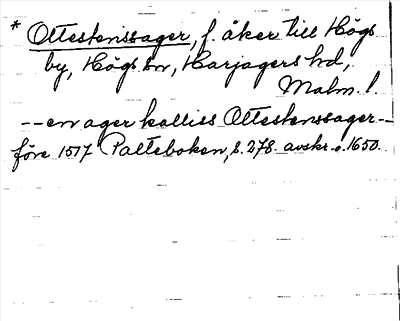 * Ottestenssager, f. åker till Högs
by, Högs sn, Harjagers hd,
Malm. l.
-- en ager kalliss Ottestenssager --
före 1517 Palteboken, s. 278. avskr. o. 1650.